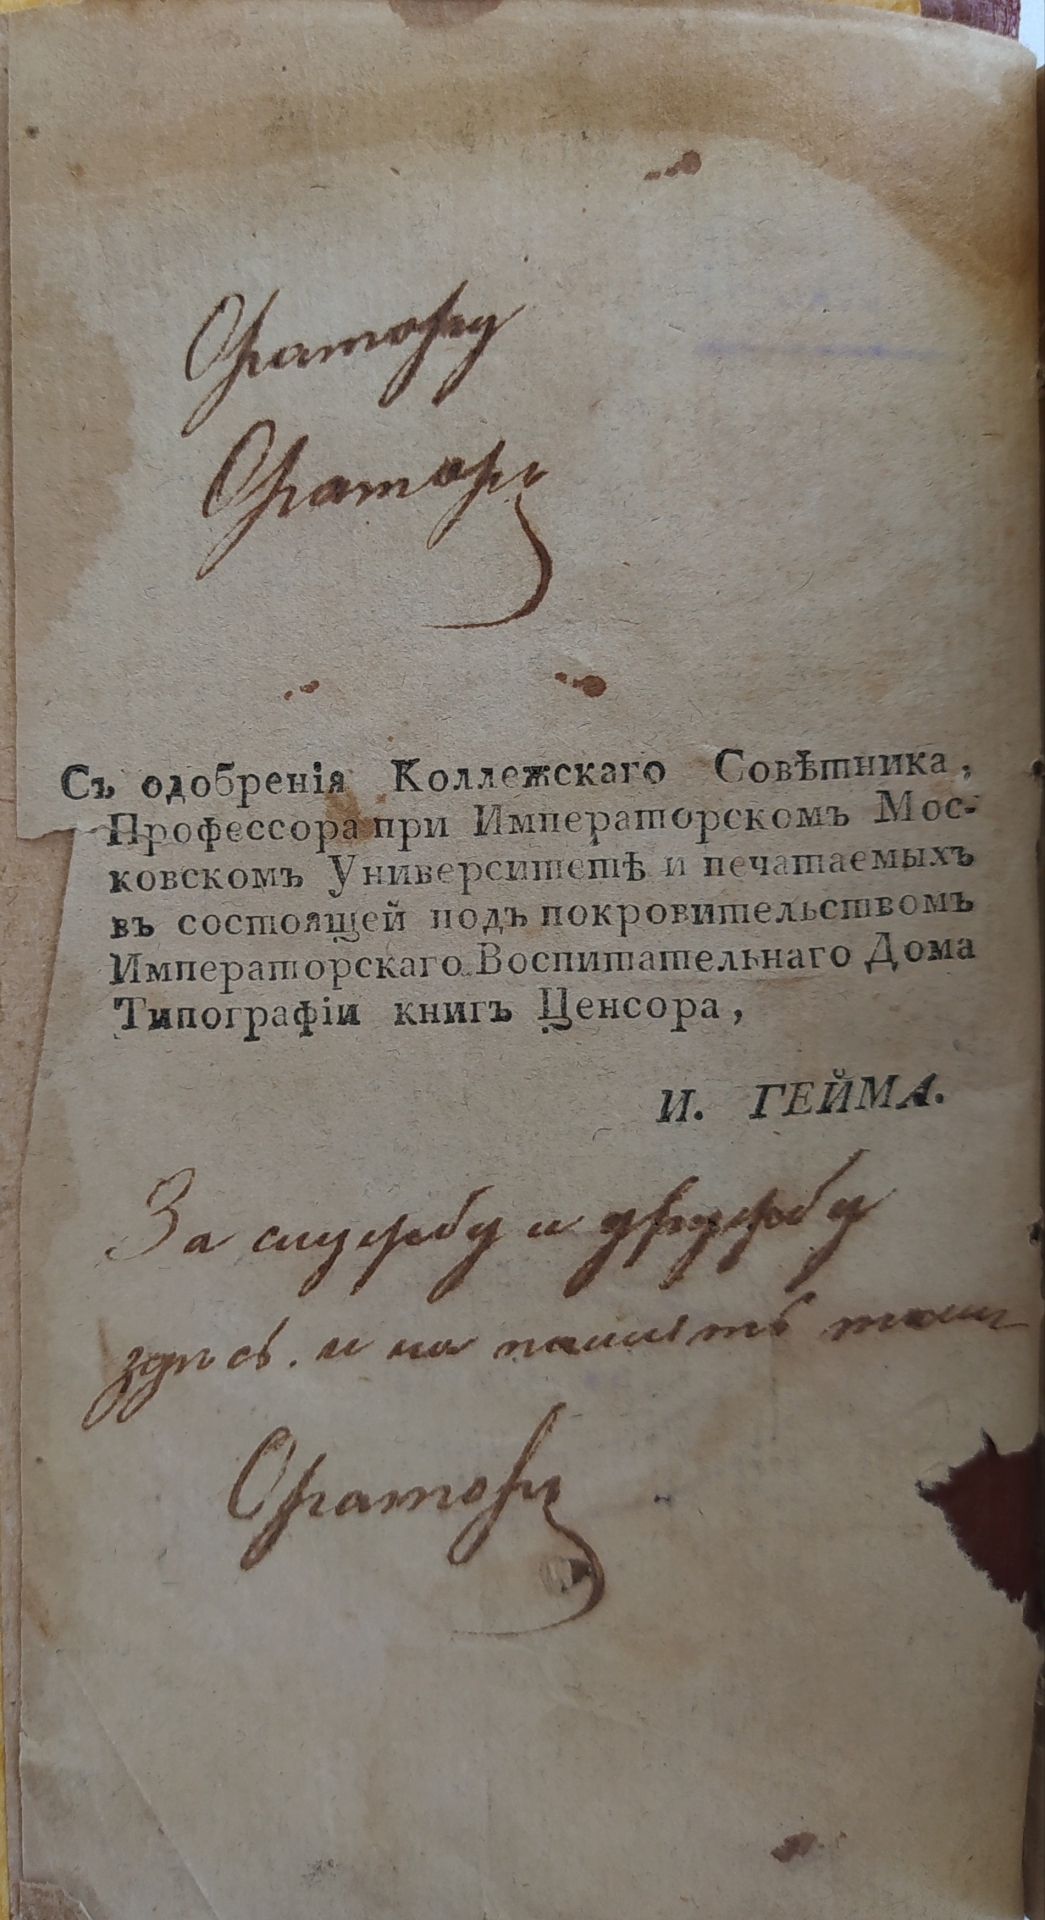 Оратору
Ораторъ
Съ одобренія Коллежскаго Совѣтника,
Профессора при Императорскомъ Мос-
ковскомъ Университетѣ и печатаемыхъ
въ состоящей подъ покровительствомъ
Императорскаго Воспитательнаго Дома
Типографіи книгъ Ценсора,
И. ГЕЙМА.
За службу и дружбу
здѣсь. и на память
Ораторъ